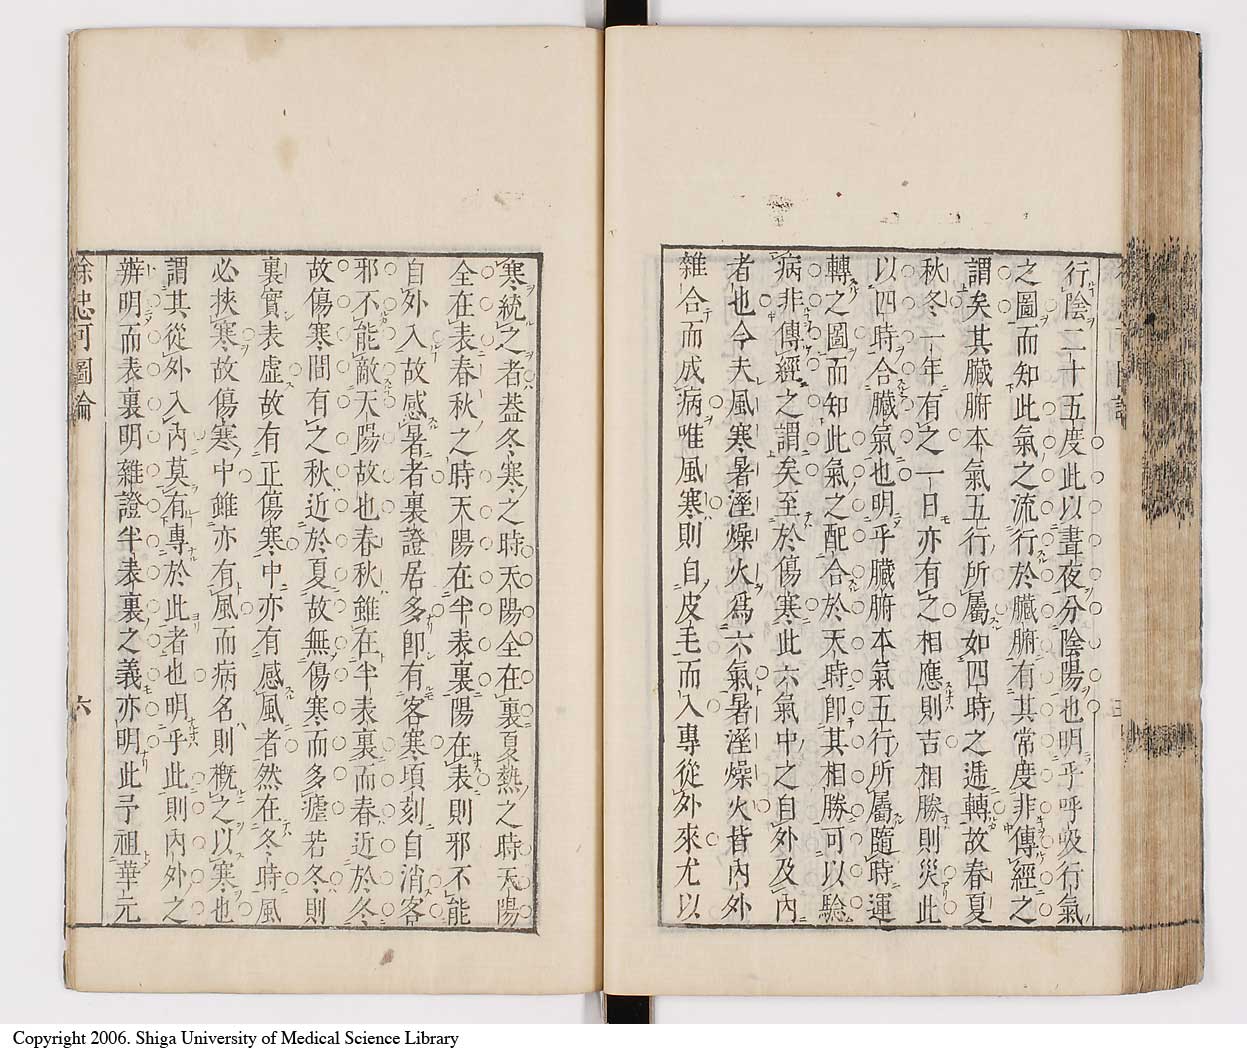 行陰二十五度此以晝夜分陰陽也明乎呼吸行氣
之圖而知此氣之流行於臟腑有其常度非傳經之
謂矣其臟腑本氣五行所屬如四時之遞轉故春夏
秋冬一年有之一日亦有之相應則吉相勝則災此
以四時合臟氣也明乎臟腑本氣五行所屬隨時運
轉之圖而知此氣之配合於天時即其相勝可以驗
病非傳經之謂矣至於傷寒此六氣中之自外及內
者也今夫風寒暑溼燥火爲六氣暑溼燥火皆內外
雜合而成病唯風寒則自皮毛而入專從外來尤以
寒統之者葢冬寒之時天陽全在裏夏熱之時天陽
全在表春秋之時天陽在半表裏陽在表則邪不能
自外入故感暑者裏證居多即有客寒頃刻自消客
邪不能敵天陽故也春秋雖在半表裏而春近於冬
故傷寒間有之秋近於夏故無傷寒而多瘧若冬則
裏實表虛故有正傷寒中亦有感風者然在冬時風
必挾寒故傷寒中雖亦有風而病名則概之以寒也
謂其從外入內莫有專於此者也明乎此則內外之
辨明而表裏明雜證半表裏之義亦明此予祖華元
余忠可圖論
六
Copyright 2006. Shiga University of Medical Science Library